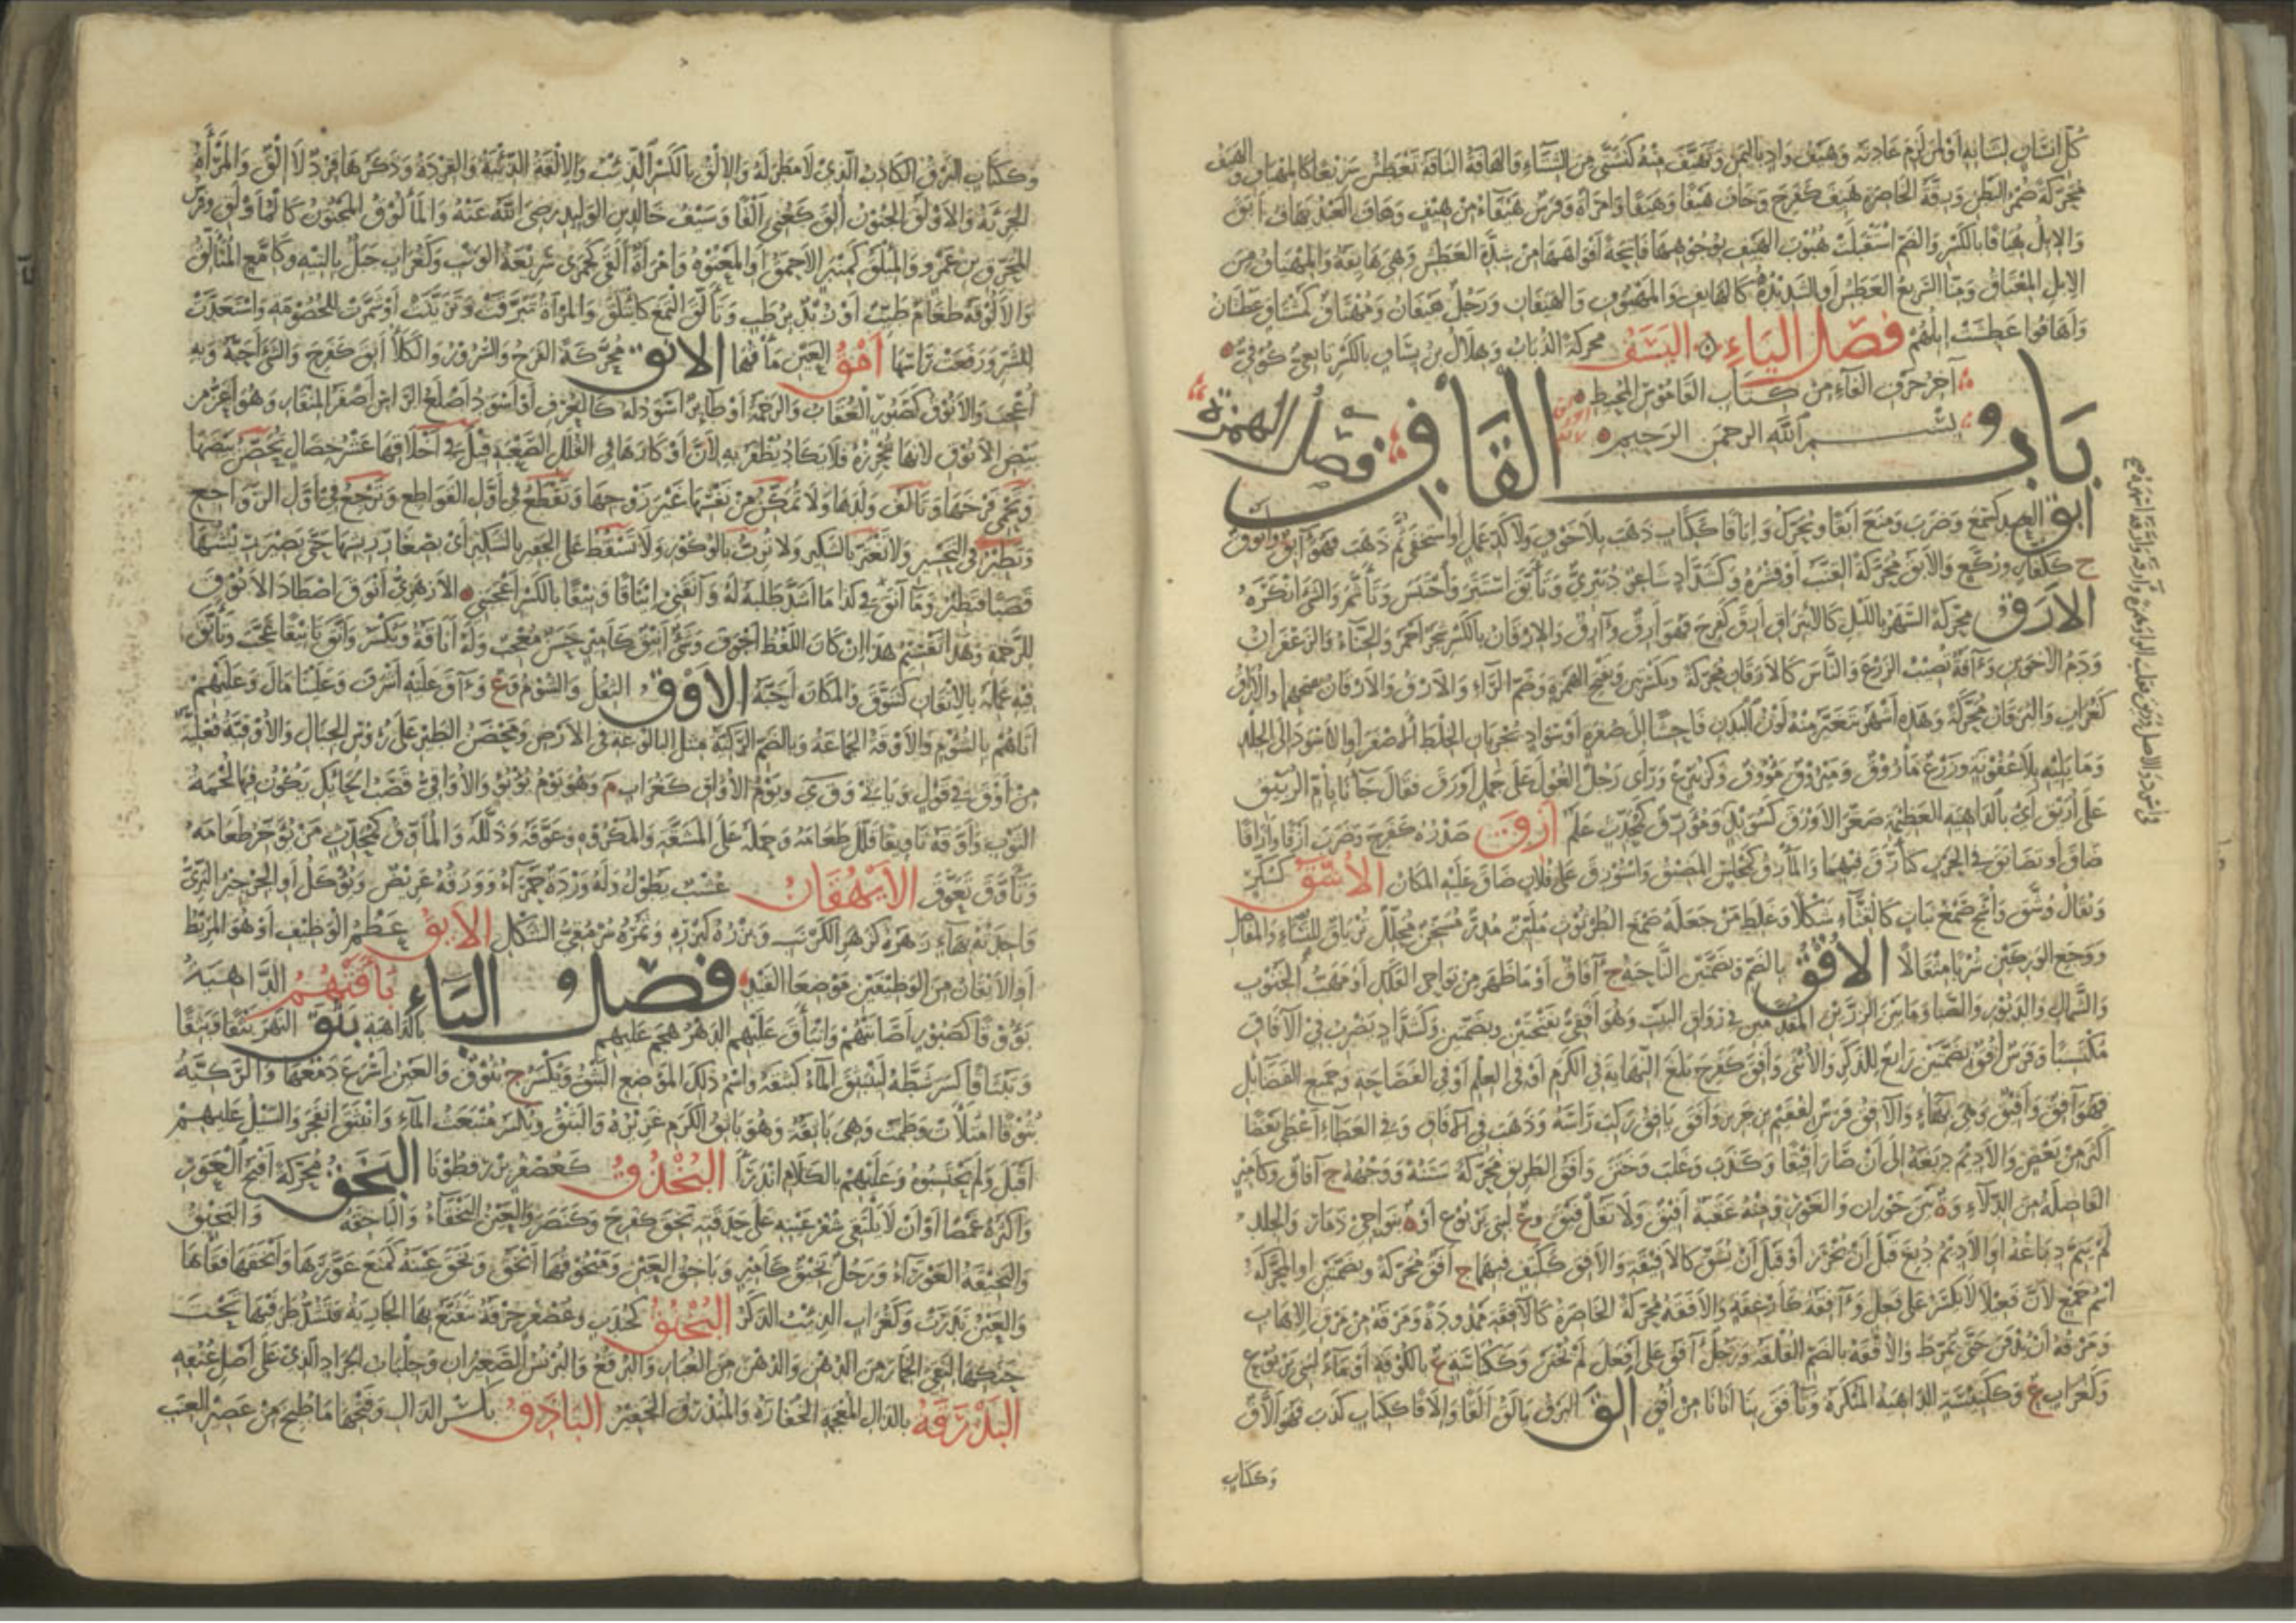 كل إنسان لسانه أو لمن لزم عادته وهيف واد باليمن وتهيف منه كتشتى من الشتاء والهافة الناقة تعطش سريعا كالمهياف والهيف
محركة ضمر البطن ورقة الخاصرة هيف كفرح وخاف هيفا وهيفا وامرأة وفرس هيفاء من هيف وهاف العبد يهاف أبق
والإبل هيافا بالكسر والضم استقبلت هبوب الهيف بوجوهها فاتحة أفواهها من شدة العطش وهي هائفة والمهياف من
الإبل المعناق ومنا السريع العطش أو الشديده كالهائف والمهيوف والهيفان ورجل هيفان ومهياف كمشتاق عطشان
وأهافوا عطشت إبلهم فصل الياء اليسف محركة الذباب وهلال بن يساف بالكسر تابعي كوفي
آخر حرف الفاء من كتاب القاموس المحيط
بسم الله الرحمن الرحيم
باب القاف فصل الهمزة
أبق العبد كسمع وضرب ومنع أبقا ويحرك وإباقا ككتاب ذهب بلا خوف ولا كد عمل أو استخفى ثم ذهب فهو آبق وأبوق
ج ككفار وركع والأبق محركة القنب أو قشره وكشداد شاعر دبيري وتأبق استتر واحتبس وتأثم والشيء أنكره
الأرق محركة السهر بالليل كالائتراق أرق كفرح فهو أرق وآرق والإرقان بالكسر شجر أحمر والحناء والزعفران
ودم الأخوين وآفة تصيب الزرع والناس كالأرقان محركة وبكسرتين وبفتح الهمزة وضم الراء والأرق والأرقان بفتحهما والأراق
كغراب واليرقان محركة وهذه أشهر يتغير منه لون البدن فاحشا إلى صفرة أو سواد بجريان الخلط الأصفر أو الأسود إلى الجلد
وما يليه بلا عفونة وزرع مأروق وميروق مؤوف وكزبير ورأى رجل الغول على جمل أورق فقال جاءنا بأم الربيق
على أريق أي بالداهية العظيمة صغر الأورق كسويد ومؤرق كمحدث علم أزق صدره كفرح وضرب أزقا وأزقا
ضاق أو تضايق في الحرب كتأزق فيهما والمأزق كمجلس المضيق واستؤزق على فلان ضاق عليه المكان الأشق كسكر
ويقال وشق وأشج صمغ نبات كالقثاء شكلا وغلط من جعله صمغ الطرثوث ملين مدر مسخن محلل ترياق للنساء والمفاصل
ووجع الوركين شربا مثقالا الأفق بالضم وبضمتين الناحية ج آفاق أو ما ظهر من نواحي الفلك أو مهب الجنوب
والشمال والدبور والصبا وما بين الزرين المقدمين في رواق البيت وهو أفقي بفتحتين وبضمتين وكشداد يضرب في الآفاق
مكتسبا وفرس أفق بضمتين رائع للذكر والأنثى وأفق كفرح بلغ النهاية في الكرم أو في العلم أو في الفصاحة وجميع الفضائل
فهو آفق وأفيق وهي بهاء والآفق فرس لفقيم بن جرير وأفق يأفق ركب رأسه وذهب في الآفاق وفي العطاء أعطى بعضا
أكثر من بعض والأديم دبغه إلى أن صار أفيقا وكذب وغلب وختن وأفق الطريق محركة سننه ووجهه ج آفاق وكأمير
الفاضلة من الدلاء وة بين حوران والغور ومنه عقبة أفيق ولا تقل فيق وع لبني يربوع أو ة بنواحي ذمار والجلد
لم يتم دباغه أو الأديم دبغ قبل أن يخرز أو قبل أن يشق كالأفيقة والأفق ككتف فيهما ج أفق محركة وبضمتين أو المحركة
اسم جمع لأن فعيلا لا يكسر على فعل وآفقة كأرغفة والأفقة محركة الخاصرة كالآفقة ممدودة ومرقة من مرق الإهاب
ومرقه أن يدفن حتى يمرط والأفقة بالضم القلفة ورجل آفق على أفعل لم يختن وككناسة ع بالكوفة أو ماء لبني يربوع
وكغراب ع وكسفينة الداهية المنكرة وتأفق بنا أتانا من أفق ألق البرق يألق ألقا وإلاقا ككتاب كذب فهو ألاق
وككتاب
وككتاب البرق الكاذب الذي لا مطر له والإلق بالكسر الذئب والإلقة الذئبة والقردة وذكرها قرد لا إلق والمرأة
الجريئة والأولق الجنون ألق كعني ألقا وسيف خالد بن الوليد رضي الله عنه والمألوق المجنون كالمأولق وفرس
المحرق بن عمرو والمئلق كمنبر الأحمق أو المعتوه وامرأة ألقى كجمزى سريعة الوثب وكغراب جبل بالتيه وكامع المتألق
والألوقة طعام طيب أو زبد برطب وتألق البرق التمع كائتلق والمرأة تبرقت وتزينت أو شمرت للخصومة واستعدت
للشر ورفعت رأسها أمق العين مأقها الأنق محركة الفرح والسرور والكلأ أنق كفرح والشيء أحبه وبه
أعجب والأنوق كصبور العقاب والرخمة أو طائر أسود له كالعرف أو أسود أصلع الرأس أصفر المنقار وهو أعز من
بيض الأنوق لأنها تحرزه فلا يكاد يظفر به لأن أوكارها في القلل الصعبة قيل في أخلاقها عشر خصال تحضن بيضها
وتحمي فرخها وتألف ولدها ولا تمكن من نفسها غير زوجها وتقطع في أول القواطع وترجع في أول الرواجع
وتطير في التحسير ولا تغتر بالشكير ولا ترب بالوكور ولا تسقط على الجفير بالشكير أي بصغار ريشها حتى يصير ريشها
قصبا فتطير وما آنقه في كذا ما أشد طلبه له وآنقني إيناقا ونيقا بالكسر أعجبني الأزهري أنوق اصطاد الأنوق
للرخمة وهذا يستقيم هذا إن كان اللفظ أجوف وشيء أنيق كأمير حسن معجب وله أناقة ويكسر وأنق تأنيقا عجب وتأنق
فيه عمله بالإتقان كتنوق والمكان أحبه الأوق الثقل والشؤم وع وآق عليه أشرف وعلينا مال وعليهم
أتاهم بالشؤم والأوقة الجماعة وبالضم الركية مثل البالوعة في الأرض ومحضن الطير على رؤوس الجبال والأوقية فعلية
من أوق في قول ويأتي في وقي ويوم الأواق كغراب م وهو يوم يؤيؤ والأواقي قصب الحائك يكون فيها لحمة
الثوب وأوقه تأويقا قلل طعامه وحمله على المشقة والمكروه وعوقه وذلله والمأوق كمحدث من يؤخر طعامه
وتأوق تعوق الأيهقان عشب يطول وله وردة حمراء وورقه عريض ويؤكل أو الجرجير البري
واحدته بهاء زهره كزهر الكرنب وبزره كبزره وثمره سرمقي الشكل الأيق عظم الوظيف أو هو المريط
أو الأيقان من الوظيفين موضعا القيد فصل الباء باقتهم الداهية
بؤوقا كصبور أصابتهم وانباق عليهم الدهر هجم عليهم بالداهية بثق النهر بثقا وبثقا
وتبثاقا كسر شطه لينبثق الماء كبثقه واسم ذلك الموضع البثق ويكسر ج بثوق والعين أسرع دمعها والركية
بثوقا امتلأت وطمت وهي باثقة وهو باثق الكرم غزيره والبثق ويكسر منبعث الماء وانبثق انفجر والسيل عليهم
أقبل ولم يحتسبوه وعليهم بالكلام اندرأ البخدق كعصفر بزر قطونا البخق محركة أقبح العور
وأكثره غمصا أو أن لا يلتقي شفر عينيه على حدقته بخق كفرح وكنصر والعين البخقاء والباخقة والبخيق
والبخيقة العوراء ورجل بخيق كأمير وباخق العين ومبخوقها أبخق وبخق عينه كمنع عورها وأبخقها فقأها
والعين ندرت وكغراب الذئب الذكر البخنق كجندب وعصفر خرقة تتقنع بها الجارية فتشد طرفيها تحت
حنكها لتقي الخمار من الدهن والدهن من الغبار والبرقع والبرنس الصغيران وجلباب الجراد الذي على أصل عنقه
البذرقة بالذال المعجمة الخفارة والمبذرق الخفير الباذق بكسر الذال وفتحها ما طبخ من عصير العنب